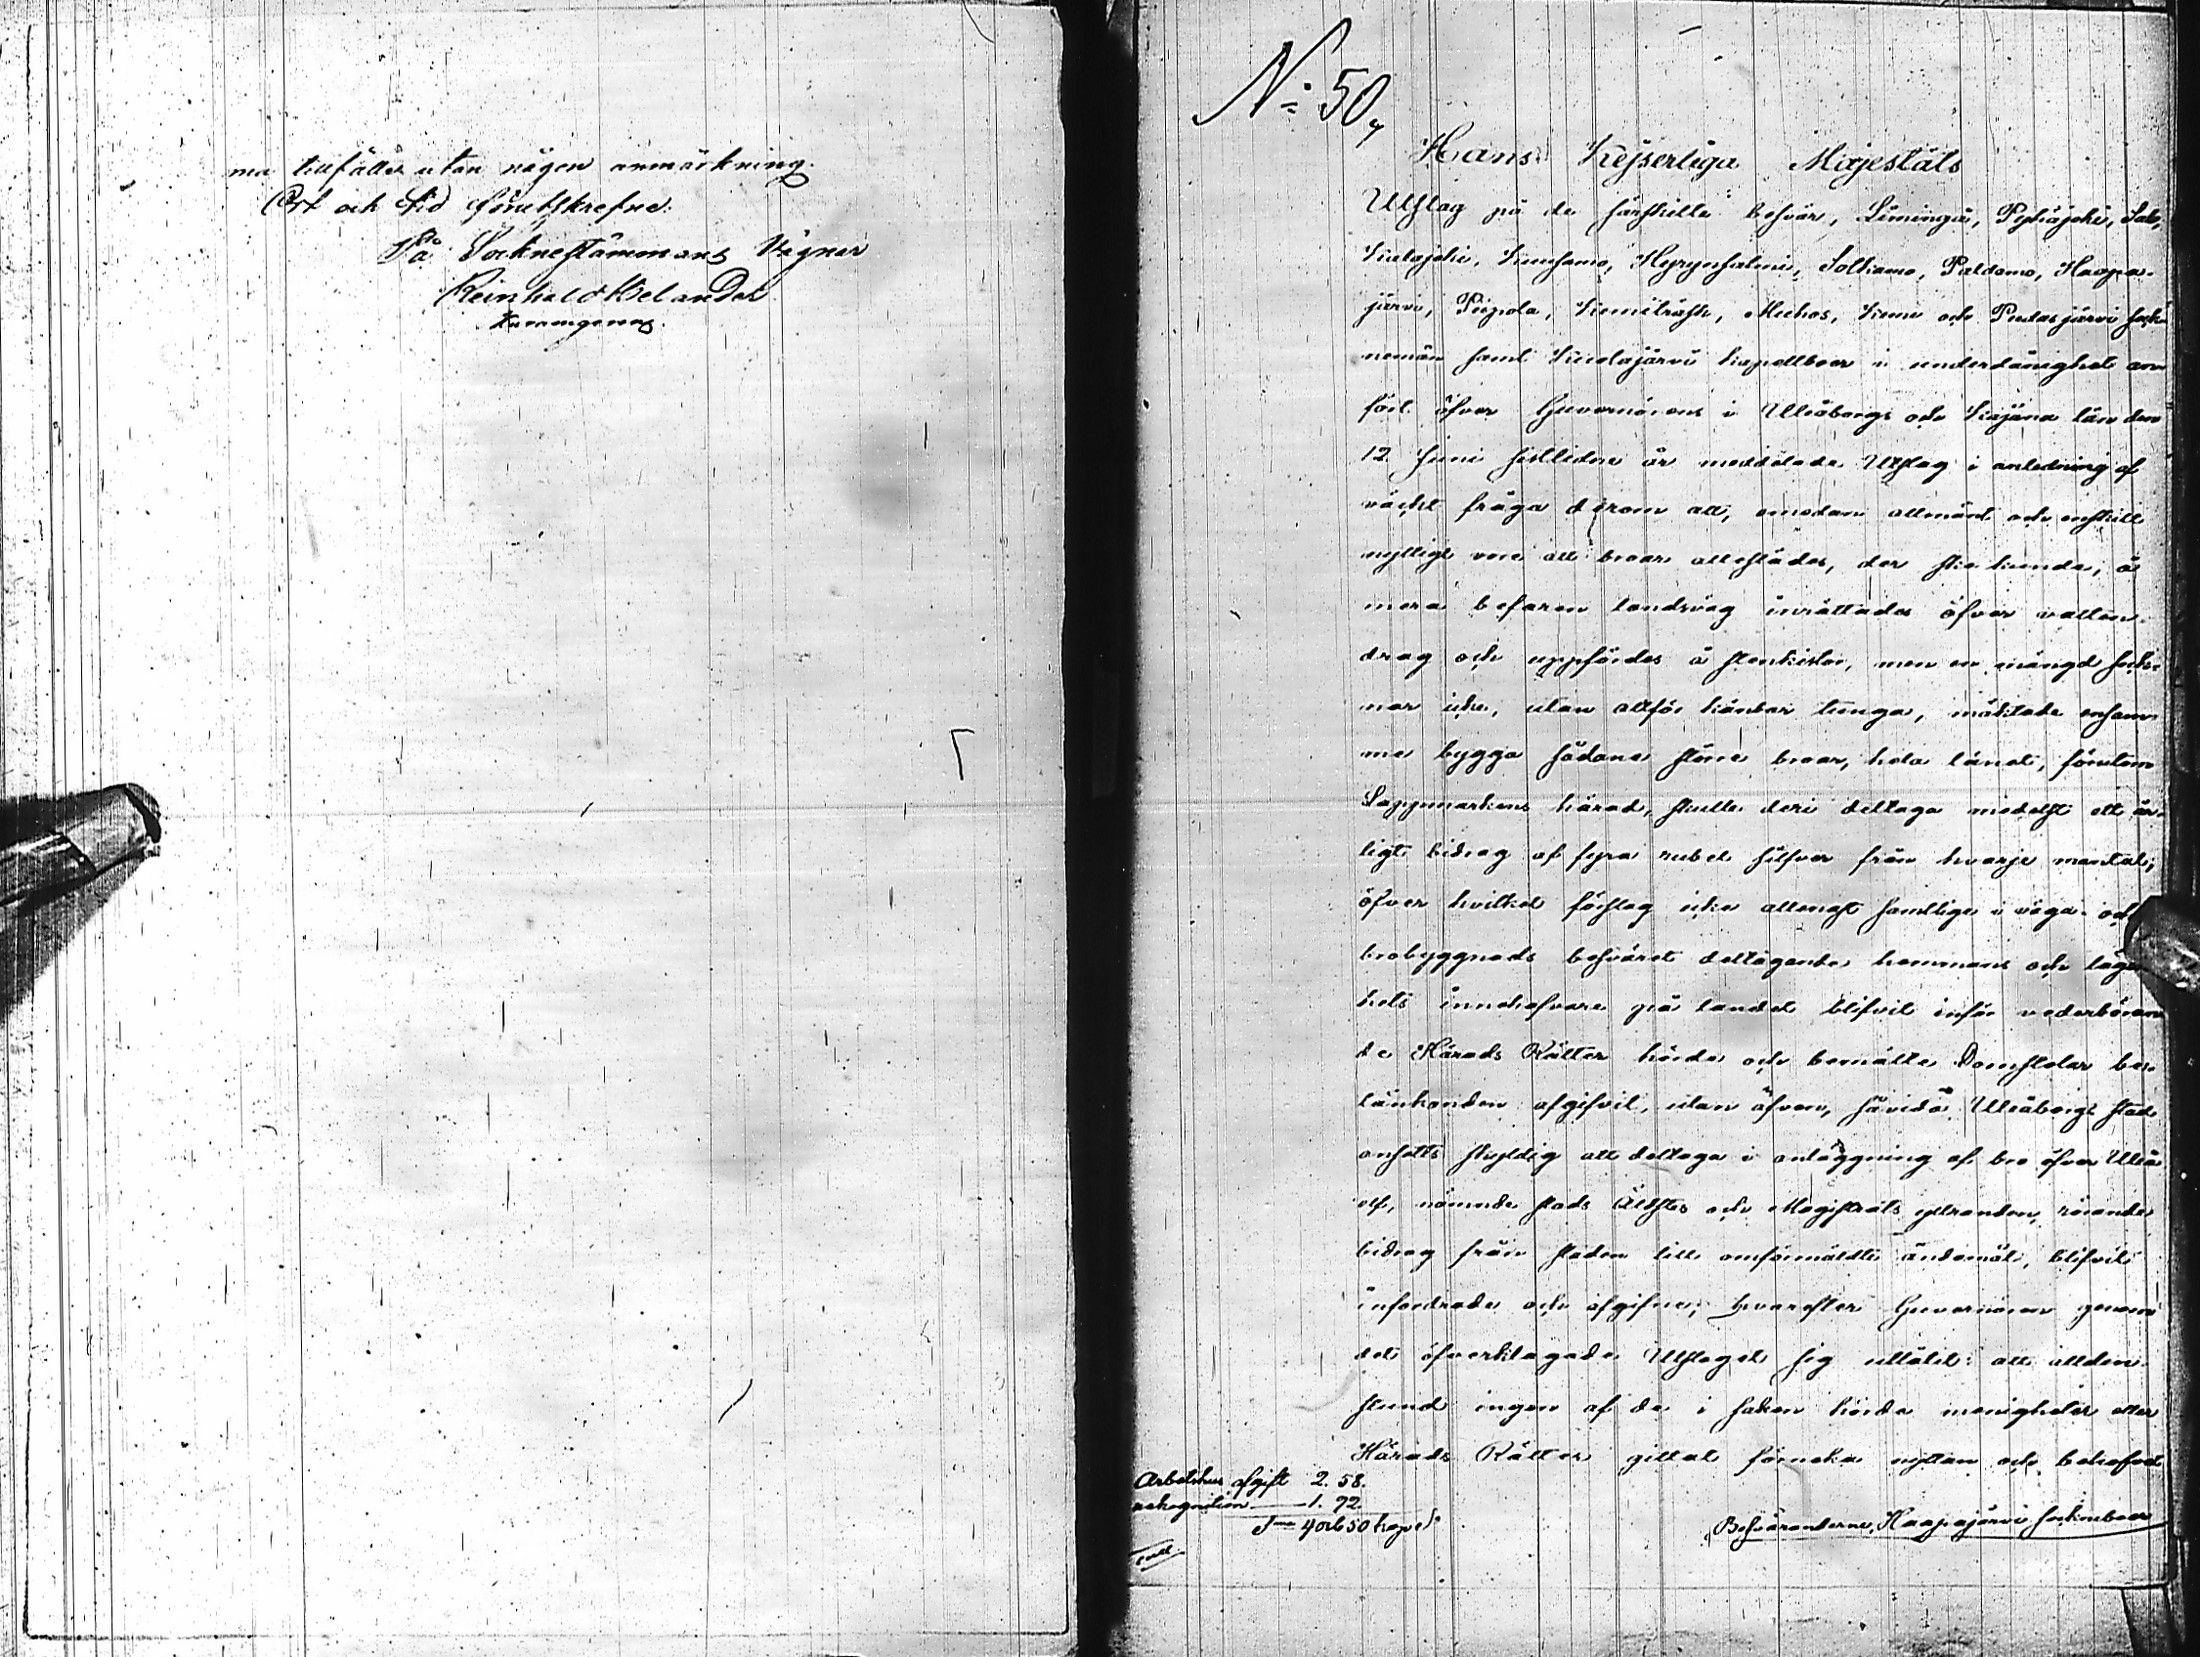 ma tillfälle utan någon anmärkning.
Ort och tid förutskrefne.
På Socknestämmans Vägnar
Reinhold Helander
No 50,
Hans Kejserliga Majestäts
Utslag på de särskilte besvär, Limingå, Pyhäjoki, Salo,
Kalajoki, Kuusamo, Hyrynsalmi, Sotkamo, Paldamo, Haapa-
järvi, Piipola, Kemiträsk, Muhos, Kemi och Pudasjärvi sock-
nemän samt Kuolajärvi kapellboer i underdånighet an-
fört öfver Guvernörens i Uleåborgs och Kajana län den
12 Juni sistlidne år meddelade Utslag i anledning af
väckt fråga derom att, emedan allmänt och enskilt
nyttigt vore att broar allestädes, der ske kunde, å
mera befaren landsväg inrättades öfver vatten-
drag och uppfördes å stenkistor, men en mängd sock-
nar icke, utan allför känbar tunga, mäktade ensam-
me bygga sådane större broar, hela länet, förutom
Lappmarkens härad, skulle deri deltaga medelst ett år-
ligt bidrag af fyra rubel silfver från hvarje mantal;
öfver hvilket förslag icke allenast samtlige i väga- och
brobyggnads besväret deltagande hemmans och lägen-
hets innehafvare på landet blifvit inför vederböran-
de Härads Rätter hörde och bemälte Domstolar be-
tänkanden afgifvit, utan äfven, såvida Uleåborgs stad
ansetts skyldig att deltaga i anläggning af bro öfver Uleå
elf, nämnde stads Äldstes och Magistrats yttranden, rörande
bidrag från staden till omförmäldte ändamål, blifvit
infordrade och afgifne; hvarefter Guvernören genom
det öfverklagade Utslaget sig utlåtit: att allden-
stund ingen af de i saken hörde menigheter eller
Härads Rätter gittat förneka nyttan och behofvet
Arbetshus afgift 2. 58.
rekognition 1. 92.
S:ma 4 rub 50 kop. s.
Besväranderne, Haapajärvi sockneboer